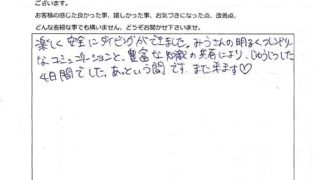 ございます。
お客様の感じた良かった事、嬉しかった事、お気づきになった点、改善点、
どんな些細な事でも構いません、どうぞお聞かせ下さいませ。
楽しく安全にダイビングができました。みうさんの明るくフレンドリー
なコミュニケーションと、豊富な知識の共有により、じゅうじつした
4日間でした。あっという間です。また来ます♡